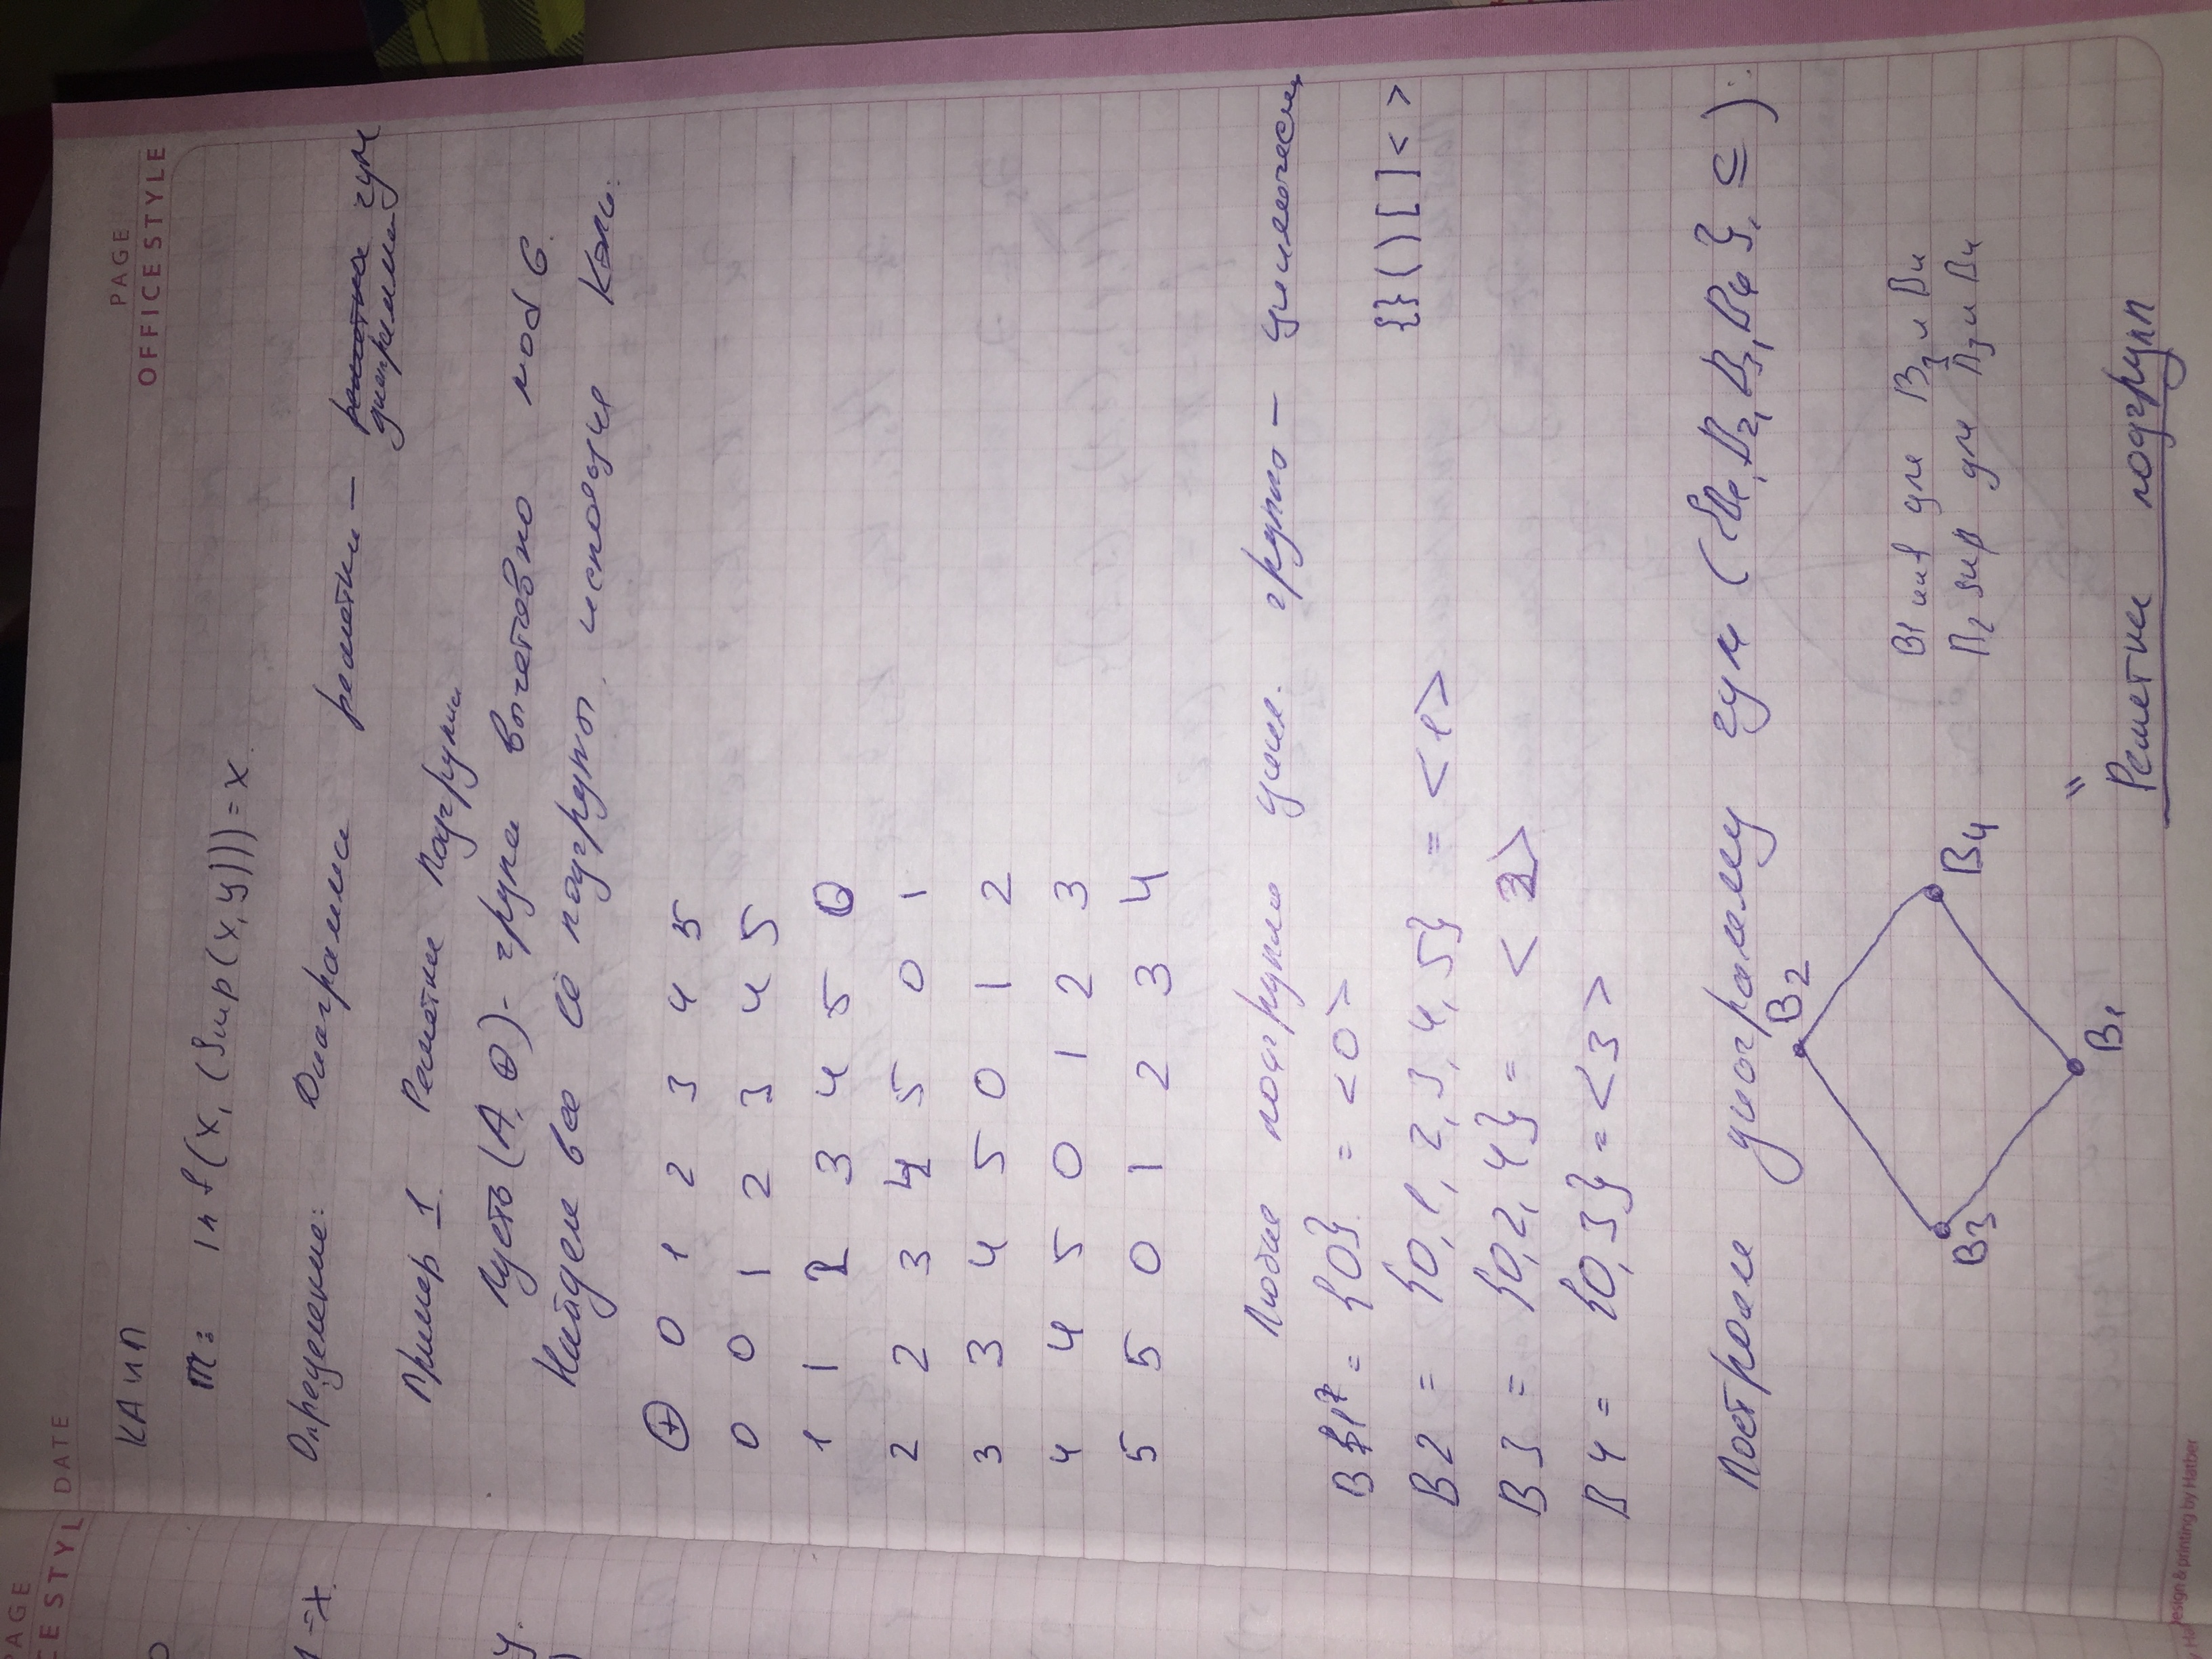 PAGE
CE STYL
DATE
PAGE
OFFICE STYLE
КАиП
m: inf(x, (Sup(x,y)))=x.
1=x.
Определение: Диаграмма решетки — решетка чум
диаграмма
Пример 1. Решетка Подгрупп
y.
Пусть (A, ⊕) - група вычетов по mod 6.
Найдем все её подгрупы, используя Кэли:
⊕ 0 1 2 3 4 5
0 0 1 2 3 4 5
1 1 2 3 4 5 0
2 2 3 4 5 0 1
3 3 4 5 0 1 2
4 4 5 0 1 2 3
5 5 0 1 2 3 4
Любая подгруппа цикл. группы — циклическая
B1 = {0} = <0>
{}()[]< >
B2 = {0,1,2,3,4,5} = <1>
B3 = {0,2,4} = <2>
B4 = {0,3} = <3>
Построим диаграмму чум ({B1,B2,B3,B4}, ⊆):
B2
B1 инf для B3 и B4
B3
B4
B2 sup для B3 и B4
B1
"
Решетка подгрупп
Design & printing by Hatber